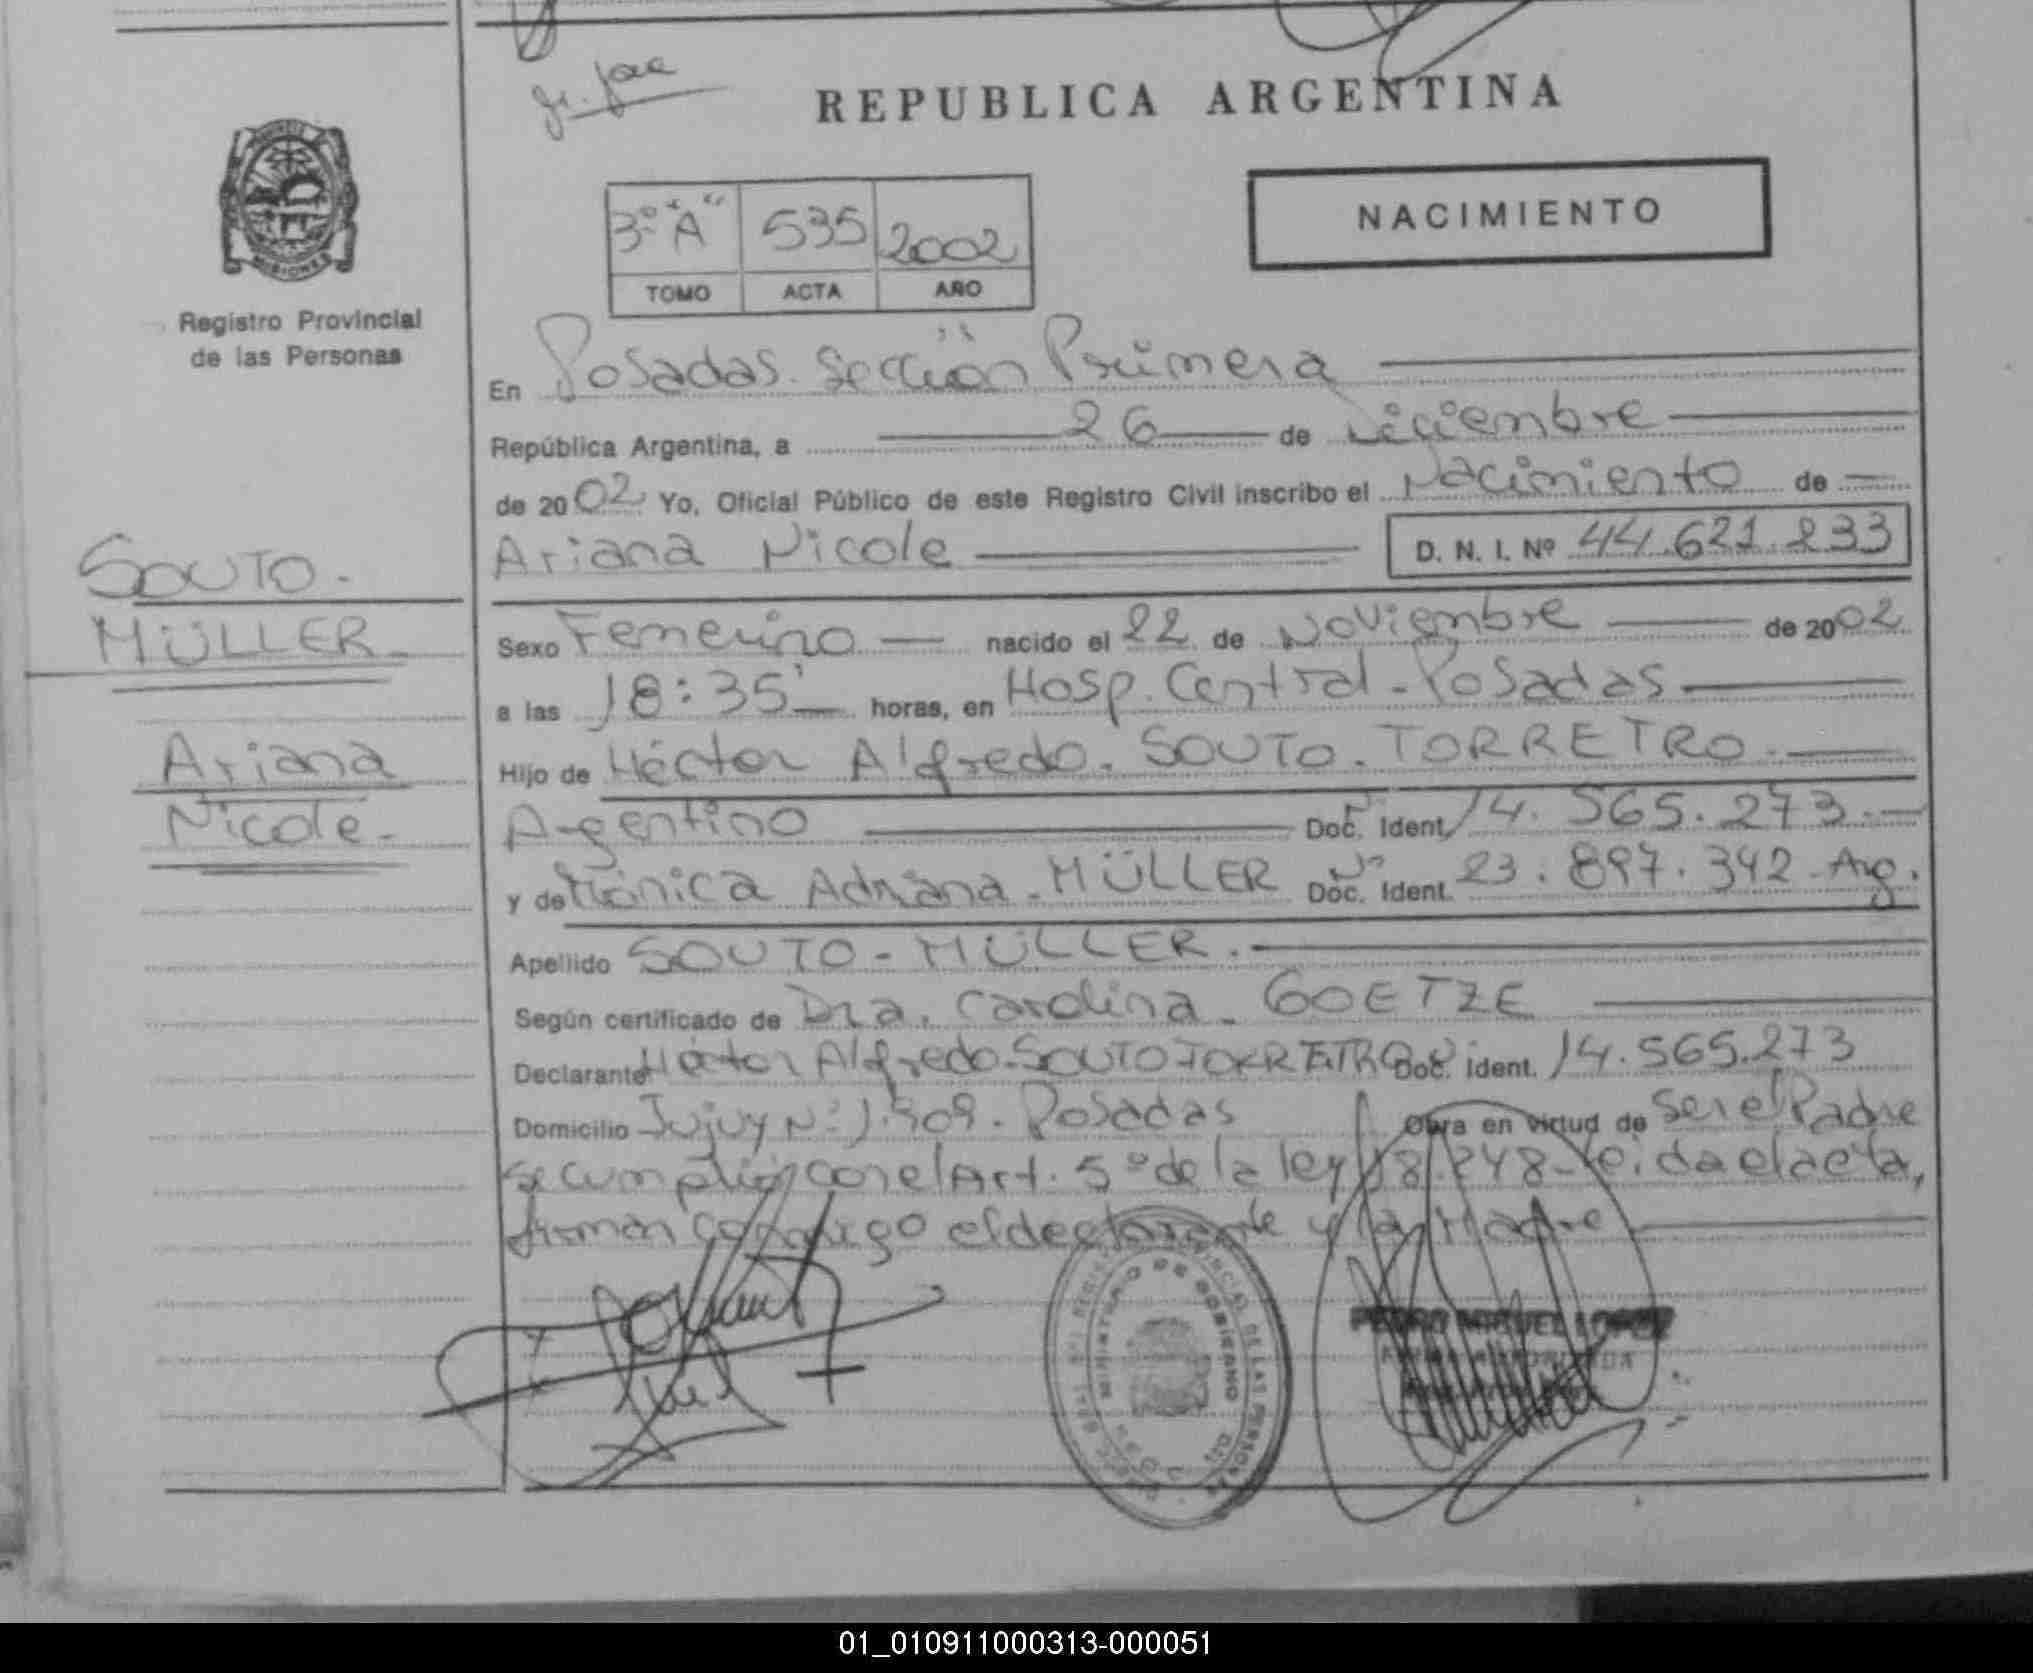 REPUBLICA ARGENTINA
NACIMIENTO
3º "A" 535 2002
TOMO ACTA AÑO
MISIONES
Registro Provincial
de las Personas
En Posadas. Sección Primera
República Argentina, a 26 de Diciembre
de 2002 Yo, Oficial Público de este Registro Civil inscribo el Nacimiento de
Ariana Nicole D. N. I. Nº 44.621.233
SOUTO.
MÜLLER
Ariana
Nicole
Sexo Femenino nacido el 22 de Noviembre de 2002
a las 18:35' horas, en Hosp. Central - Posadas
Hijo de Héctor Alfredo. SOUTO. TORRETRO
Argentino Nº Doc. Ident. 14.565.273
y de Mónica Adriana - MÜLLER Nº Doc. Ident. 23.897.342 - Arg.
Apellido SOUTO - MÜLLER.
Según certificado de Dra. Carolina - GOETZE
Declarante Héctor Alfredo - SOUTO TORRETRO Doc. Ident. 14.565.273
Domicilio Jujuy Nº 1.909. Posadas Obra en virtud de Ser el Padre
se cumplió con el Art. 5º de la ley 18.248 - leida el acta,
firman conmigo el declarante y la Madre
MINISTERIO DE GOBIERNO
PEDRO MIGUEL LOPEZ
FIRMA AUTORIZADA
01_010911000313-000051